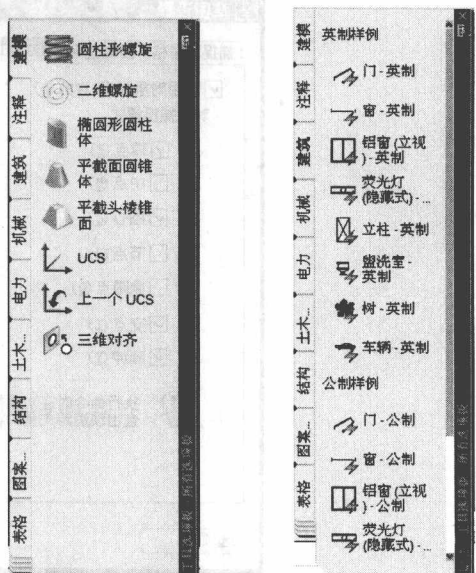 建模
注释
建筑
机械
电力
土木...
结构
图案...
表格
圆柱形螺旋
二维螺旋
椭圆形圆柱
体
平截面圆锥
体
平截头棱锥
面
UCS
上一个 UCS
三维对齐
工具选项板 - 所有选项板
建模
注释
建筑
机械
电力
土木...
结构
图案...
表格
英制样例
门 - 英制
窗 - 英制
铝窗 (立视
) - 英制
荧光灯
(隐藏式) - ...
立柱 - 英制
盥洗室 -
英制
树 - 英制
车辆 - 英制
公制样例
门 - 公制
窗 - 公制
铝窗 (立视
) - 公制
荧光灯
(隐藏式) - ...
工具选项板 - 所有选项板